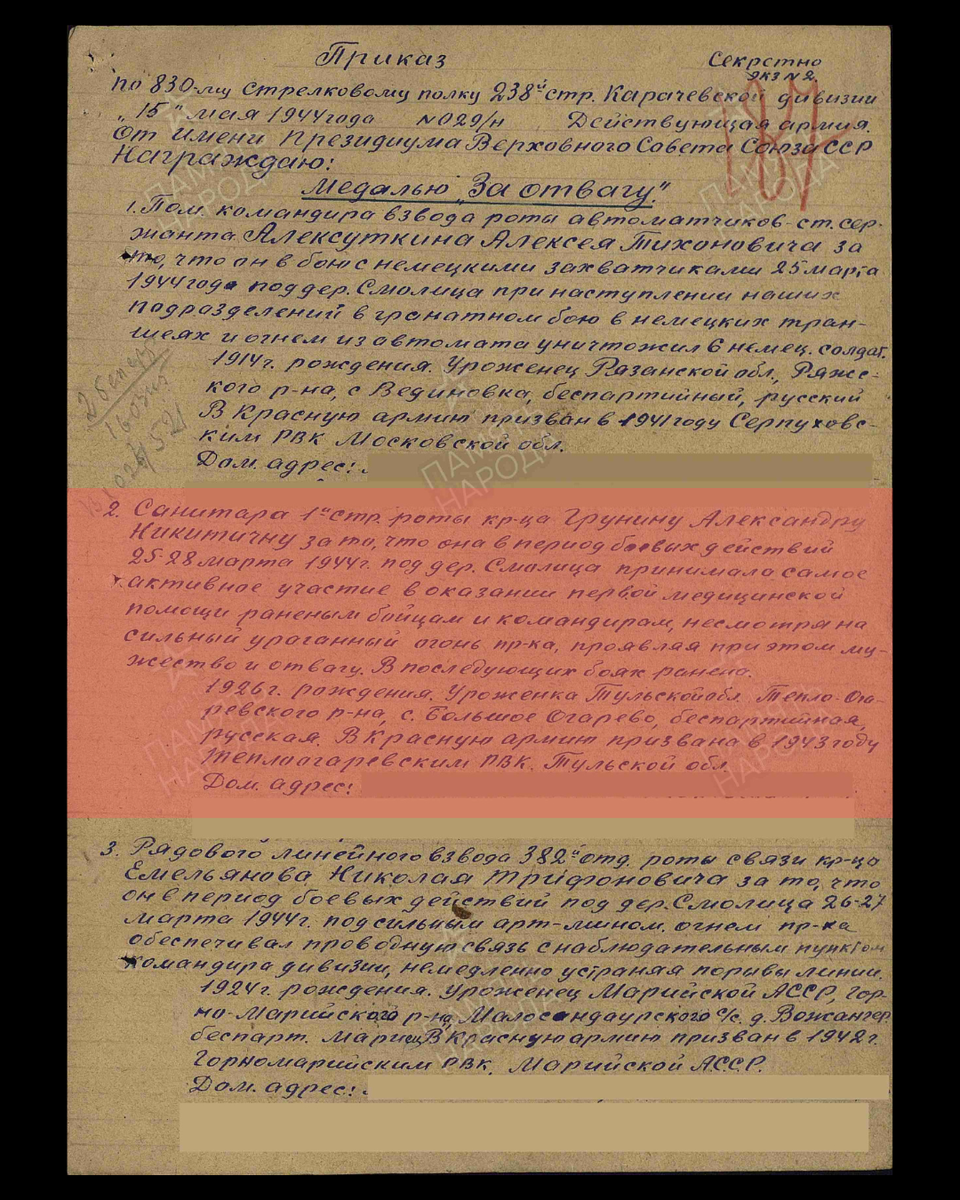 Приказ
Секретно
экз N2.
по 830-му стрелковому полку 238й стр. Карачевской дивизии
"15" мая 1944 года N029/н Действующая армия.
От имени Президиума Верховного Совета Союза ССР
Награждаю:
187
Медалью "За отвагу".
1. Пом. командира взвода роты автоматчиков - ст. сер-
жанта Алексуткина Алексея Тихоновича за
то, что он в бою с немецкими захватчиками 25 марта
1944 года под дер. Смолица при наступлении наших
подразделений в гранатном бою в немецких тран-
шеях и огнем из автомата уничтожил 6 немец. солдат.
1914г. рождения. Уроженец Рязанской обл., Ряжс-
кого р-на, с Вединовка, беспартийный, русский
В Красную армию призван в 1941 году Серпуховс-
ким РВК Московской обл.
Дом. адрес:
2. Санитара 1й стр. роты кр-ца Грунину Александру
Никитичну за то, что она в период боевых действий
25-28 марта 1944г. под дер. Смолица принимала самое
активное участие в оказании первой медицинской
помощи раненым бойцам и командирам, несмотря на
сильный ураганный огонь пр-ка, проявляя при этом му-
жество и отвагу. В последующих боях ранена.
1926г. рождения. Уроженка Тульской обл. Тепло-Ога-
ревского р-на, с. Большое Огарево, беспартийная,
русская. В Красную армию призвана в 1943 году
Теплоогаревским РВК. Тульской обл.
Дом. адрес:
3. Рядового линейного взвода 382й отд. роты связи кр-ца
Емельянова Николая Трифоновича за то, что
он в период боевых действий под дер. Смолица 26-27
марта 1944г. под сильным арт-мином. огнем пр-ка
обеспечивал проводную связь с наблюдательным пунктом
командира дивизии, немедленно устраняя порывы линии.
1924г. рождения. Уроженец Марийской АССР, Гор-
но-Марийского р-на, Малосондаурского с/с. д. Вожангер.
беспарт. Мариец В Красную армию призван в 1942г.
Горномарийским РВК, Марийской АССР.
Дом. адрес:
ПАМЯТЬ НАРОДА